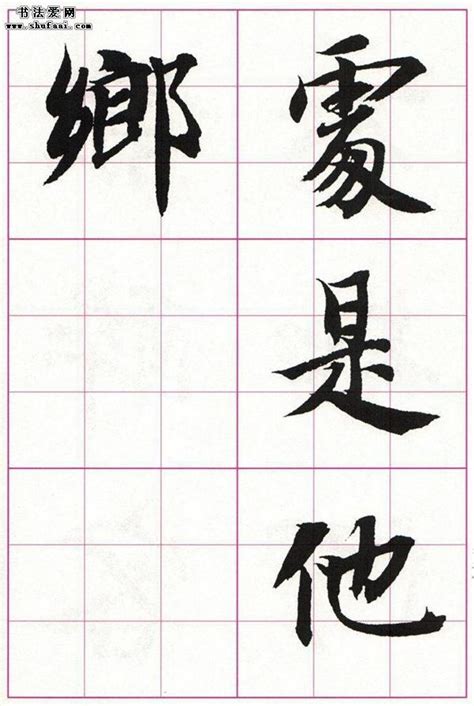 书法爱网
www.shufaai.com
處是他
鄉